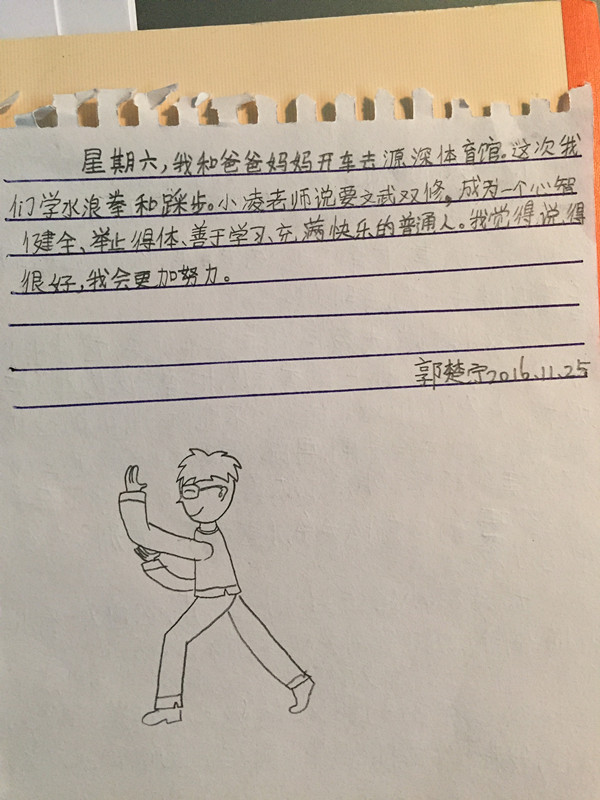 星期六，我和爸爸妈妈开车去源深体育馆。这次我
们学水浪拳和踩步。小凌老师说要文武双修，成为一个心智
健全、举止得体、善于学习、充满快乐的普通人。我觉得说得
很好，我会更加努力。
郭楚宁2016.11.25